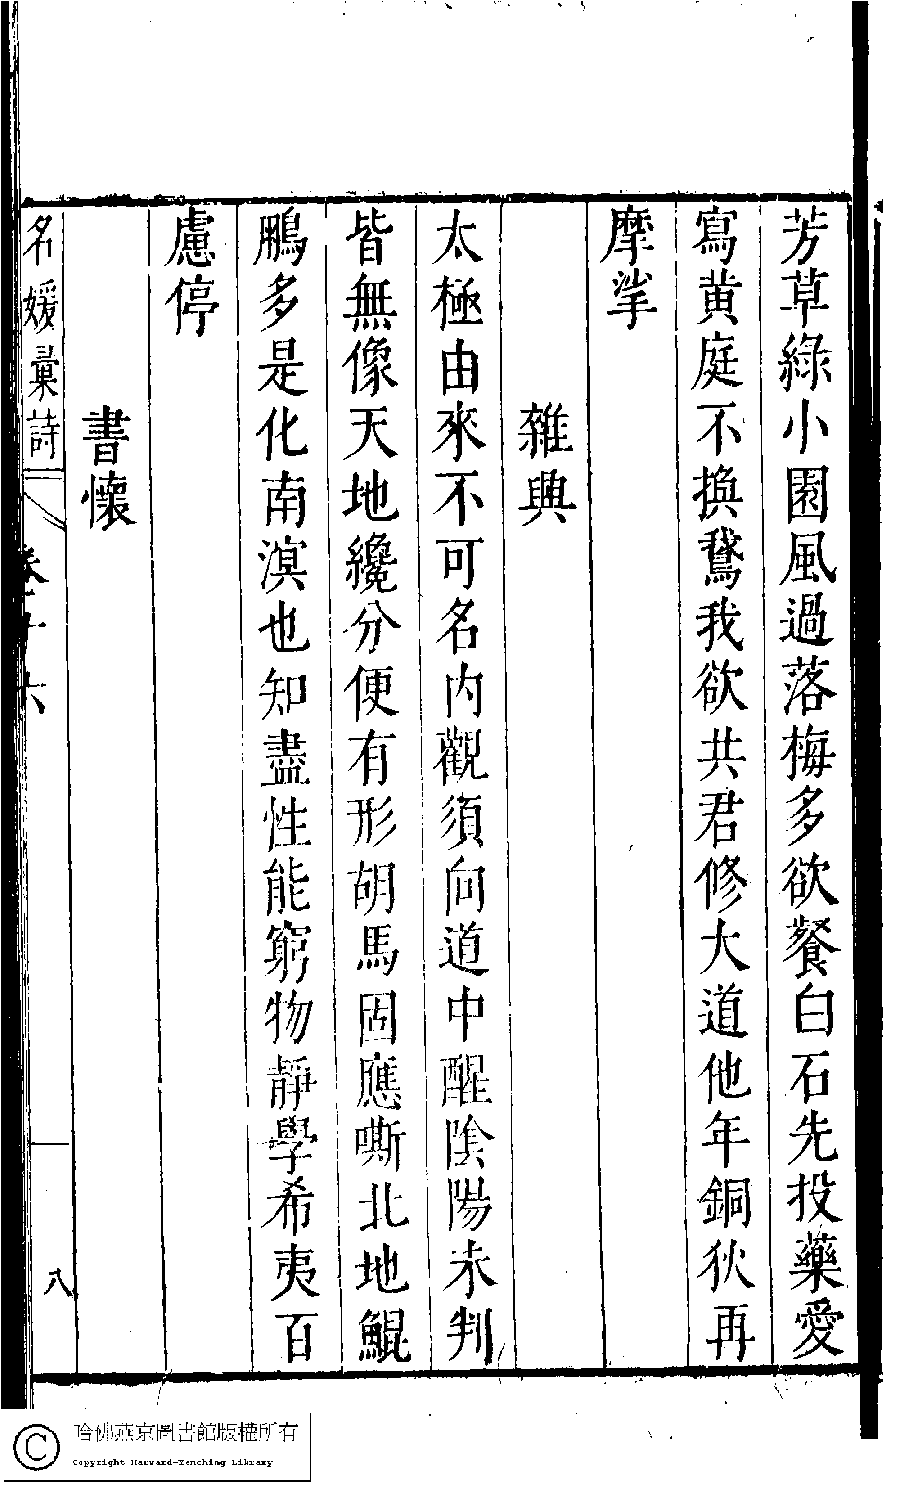 芳草綠小園風過落梅多欲餐白石先投藥愛
寫黄庭不換鵞我欲共君修大道他年銅狄再
摩挲
雜興
太極由來不可名内觀須向道中醒陰陽未判
皆無像天地纔分便有形胡馬固應嘶北地鯤
鵬多是化南溟也知盡性能窮物靜學希夷百
慮停
書懷
名媛彙詩
卷十六
八
哈佛燕京圖書館版權所有
Copyright Harvard-Yenching Library